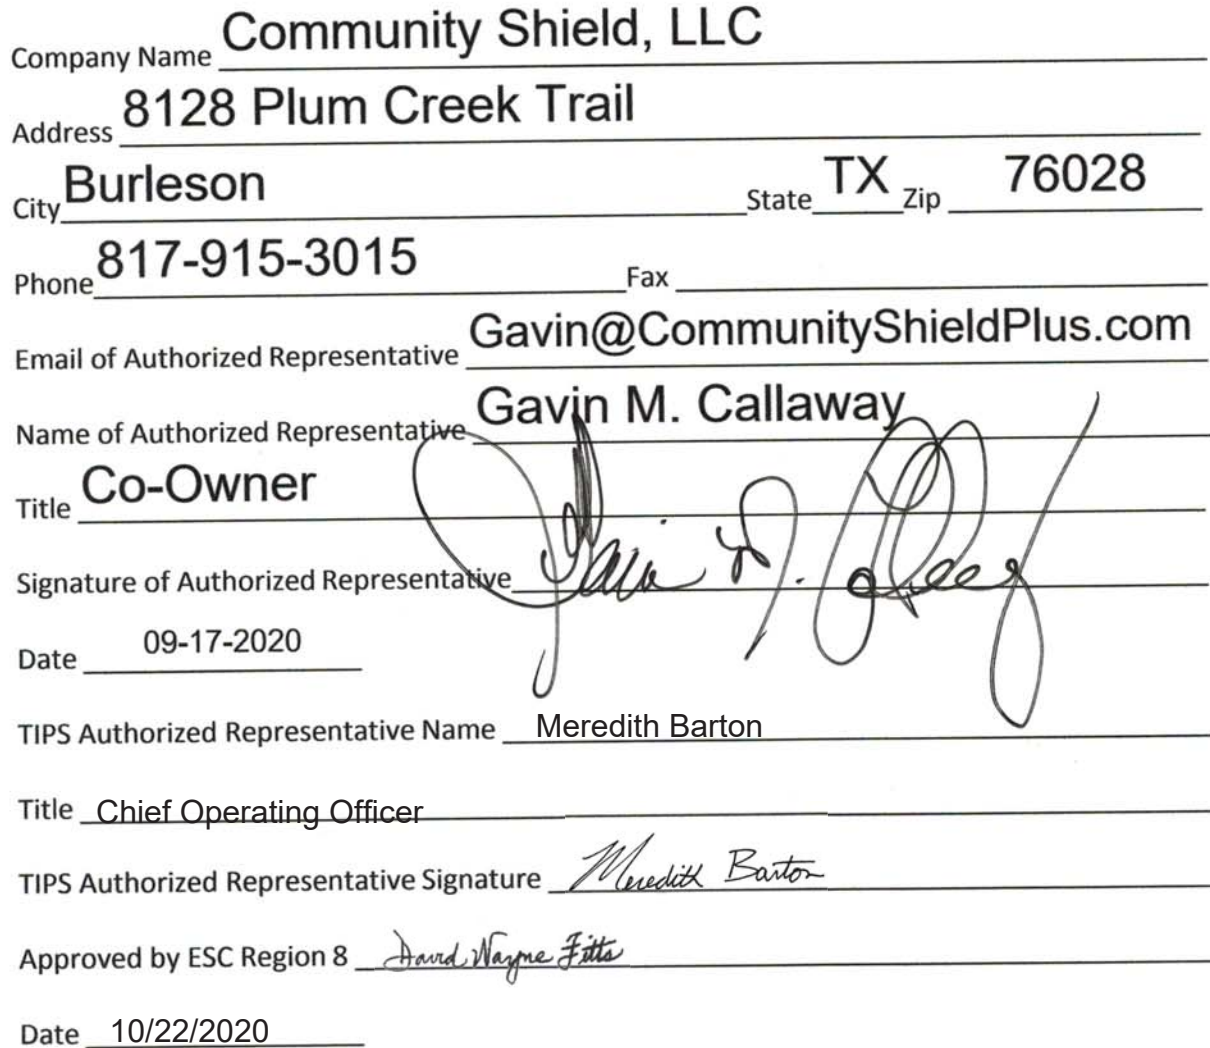 Company Name Community Shield, LLC
Address 8128 Plum Creek Trail
City Burleson State TX Zip 76028
Phone 817-915-3015 Fax
Email of Authorized Representative Gavin@CommunityShieldPlus.com
Name of Authorized Representative Gavin M. Callaway
Title Co-Owner
Signature of Authorized Representative Gavin M. Callaway
Date 09-17-2020
TIPS Authorized Representative Name Meredith Barton
Title Chief Operating Officer
TIPS Authorized Representative Signature Meredith Barton
Approved by ESC Region 8 David Wayne Fitts
Date 10/22/2020